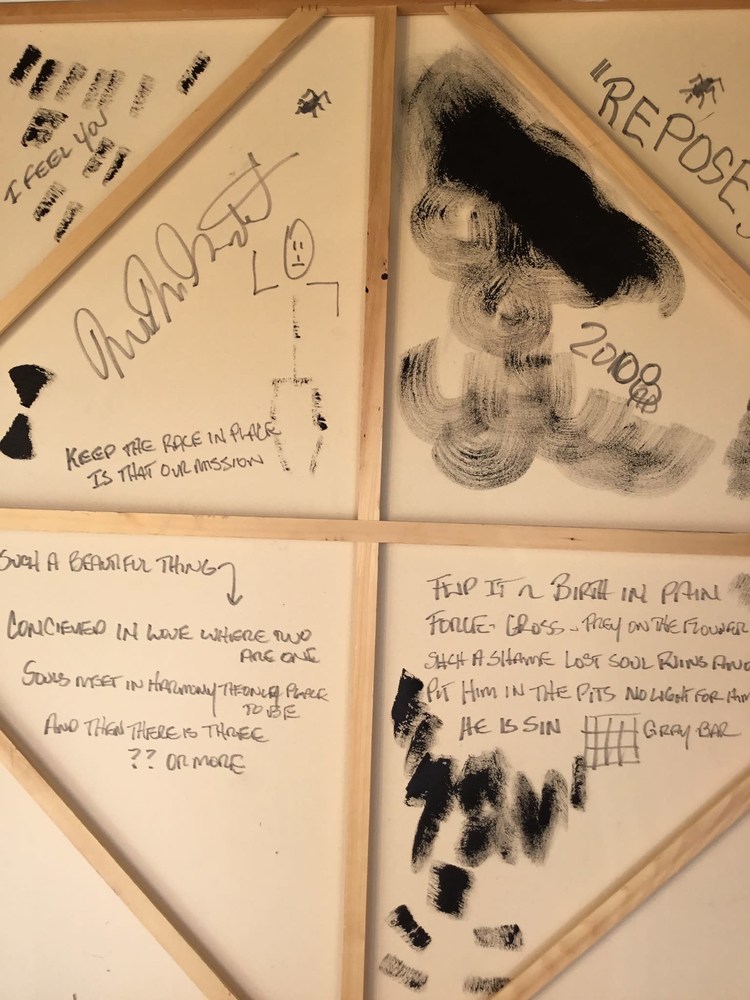 I FEEL YOU
"REPOSE
2008
KEEP THE RACE IN PLACE
IS THAT OUR MISSION
SUCH A BEAUTIFUL THING
CONCIEVED IN LOVE WHERE TWO
ARE ONE
SOULS MEET IN HARMONY THE ONLY PLACE
TO BE
AND THEN THERE IS THREE
?? OR MORE
FLIP IT ~ BIRTH IN PAIN
FORCE - GROSS - PREY ON THE FLOWER
SUCH A SHAME LOST SOUL RUINS AND
PUT HIM IN THE PITS NO LIGHT FOR HIM
HE IS SIN
GRAY BAR